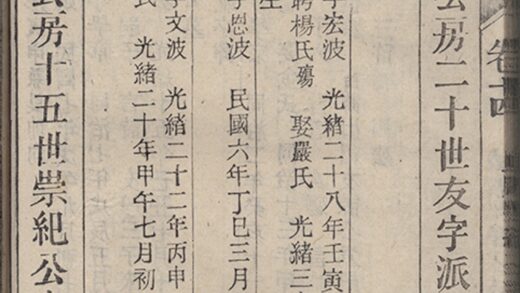 卷十四
公房二十世友字派
宏波 光緒二十八年壬寅
聘楊氏殤 娶嚴氏 光緒三
生
恩波 民國六年丁巳三月
文波 光緒二十二年丙申
氏 光緒二十年甲午七月初
房十五世崇紀公